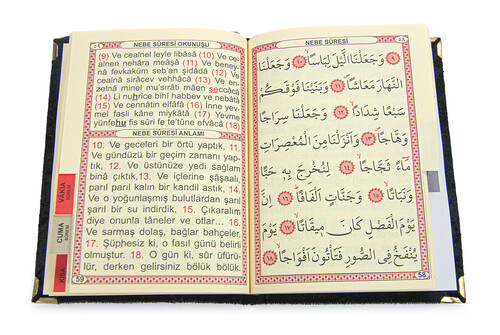 NEBE SÛRESİ OKUNUŞU
(9) Ve cealnel leyle libâsâ (10) Ve ce-
alnen nehâra meâşâ (11) Ve beney-
nâ fevkaküm seb'an şidâdâ (12) Ve
cealnâ sirâcev vehhâcâ (13) Ve en-
zelnâ minel mu'sırâti mâen seccâcâ
(14) Li nuhrice bihî habbev ve nebâtâ
(15) Ve cennâtin elfâfâ (16) İnne yev-
mel fasli kâne mîykâtâ (17) Yevme
yünfehu fis sûri fe te'tûne efvâcâ (18)
NEBE SÛRESİ ANLAMI
10. Ve geceleri bir örtü yaptık, 11.
Ve gündüzü bir geçim zamanı yap-
tık, 12. Ve üstünüze yedi sağlam
binâ çıktık,13. Ve içlerine şâşaalı,
parıl parıl kalın bir kandil astık, 14.
Ve o yoğunlaşmış bulutlardan şarıl
şarıl bir su indirdik, 15. Çıkaralım
diye onunla tâneler ve otlar... 16.
Ve sarmaş dolaş, bağlar bahçeler.
17. Şüphesiz ki, o fasıl günü belirli
olmuştur. 18. O gün ki, sûr üfürü-
lür, derken gelirsiniz bölük bölük.
59
VÂKIA
SÛRESİ
CUMA
SÛRESİ
KISA
NEBE SÛRESİ
٥٨
﴿٩﴾ وَجَعَلْنَا الَّيْلَ لِبَاسًا ﴿١٠﴾ وَجَعَلْنَا
النَّهَارَ مَعَاشًا ﴿١١﴾ وَبَنَيْنَا فَوْقَكُمْ
سَبْعًا شِدَادًا ﴿١٢﴾ وَجَعَلْنَا سِرَاجًا
وَهَّاجًا ﴿١٣﴾ وَاَنْزَلْنَا مِنَ الْمُعْصِرَاتِ
مَاءً ثَجَّاجًا ﴿١٤﴾ لِنُخْرِجَ بِهِ حَبًّا
وَنَبَاتًا ﴿١٥﴾ وَجَنَّاتٍ اَلْفَافًا ﴿١٦﴾ اِنَّ
يَوْمَ الْفَصْلِ كَانَ مِيقَاتًا ﴿١٧﴾ يَوْمَ
يُنْفَخُ فِى الصُّورِ فَتَأْتُونَ اَفْوَاجًا ﴿١٨﴾
58